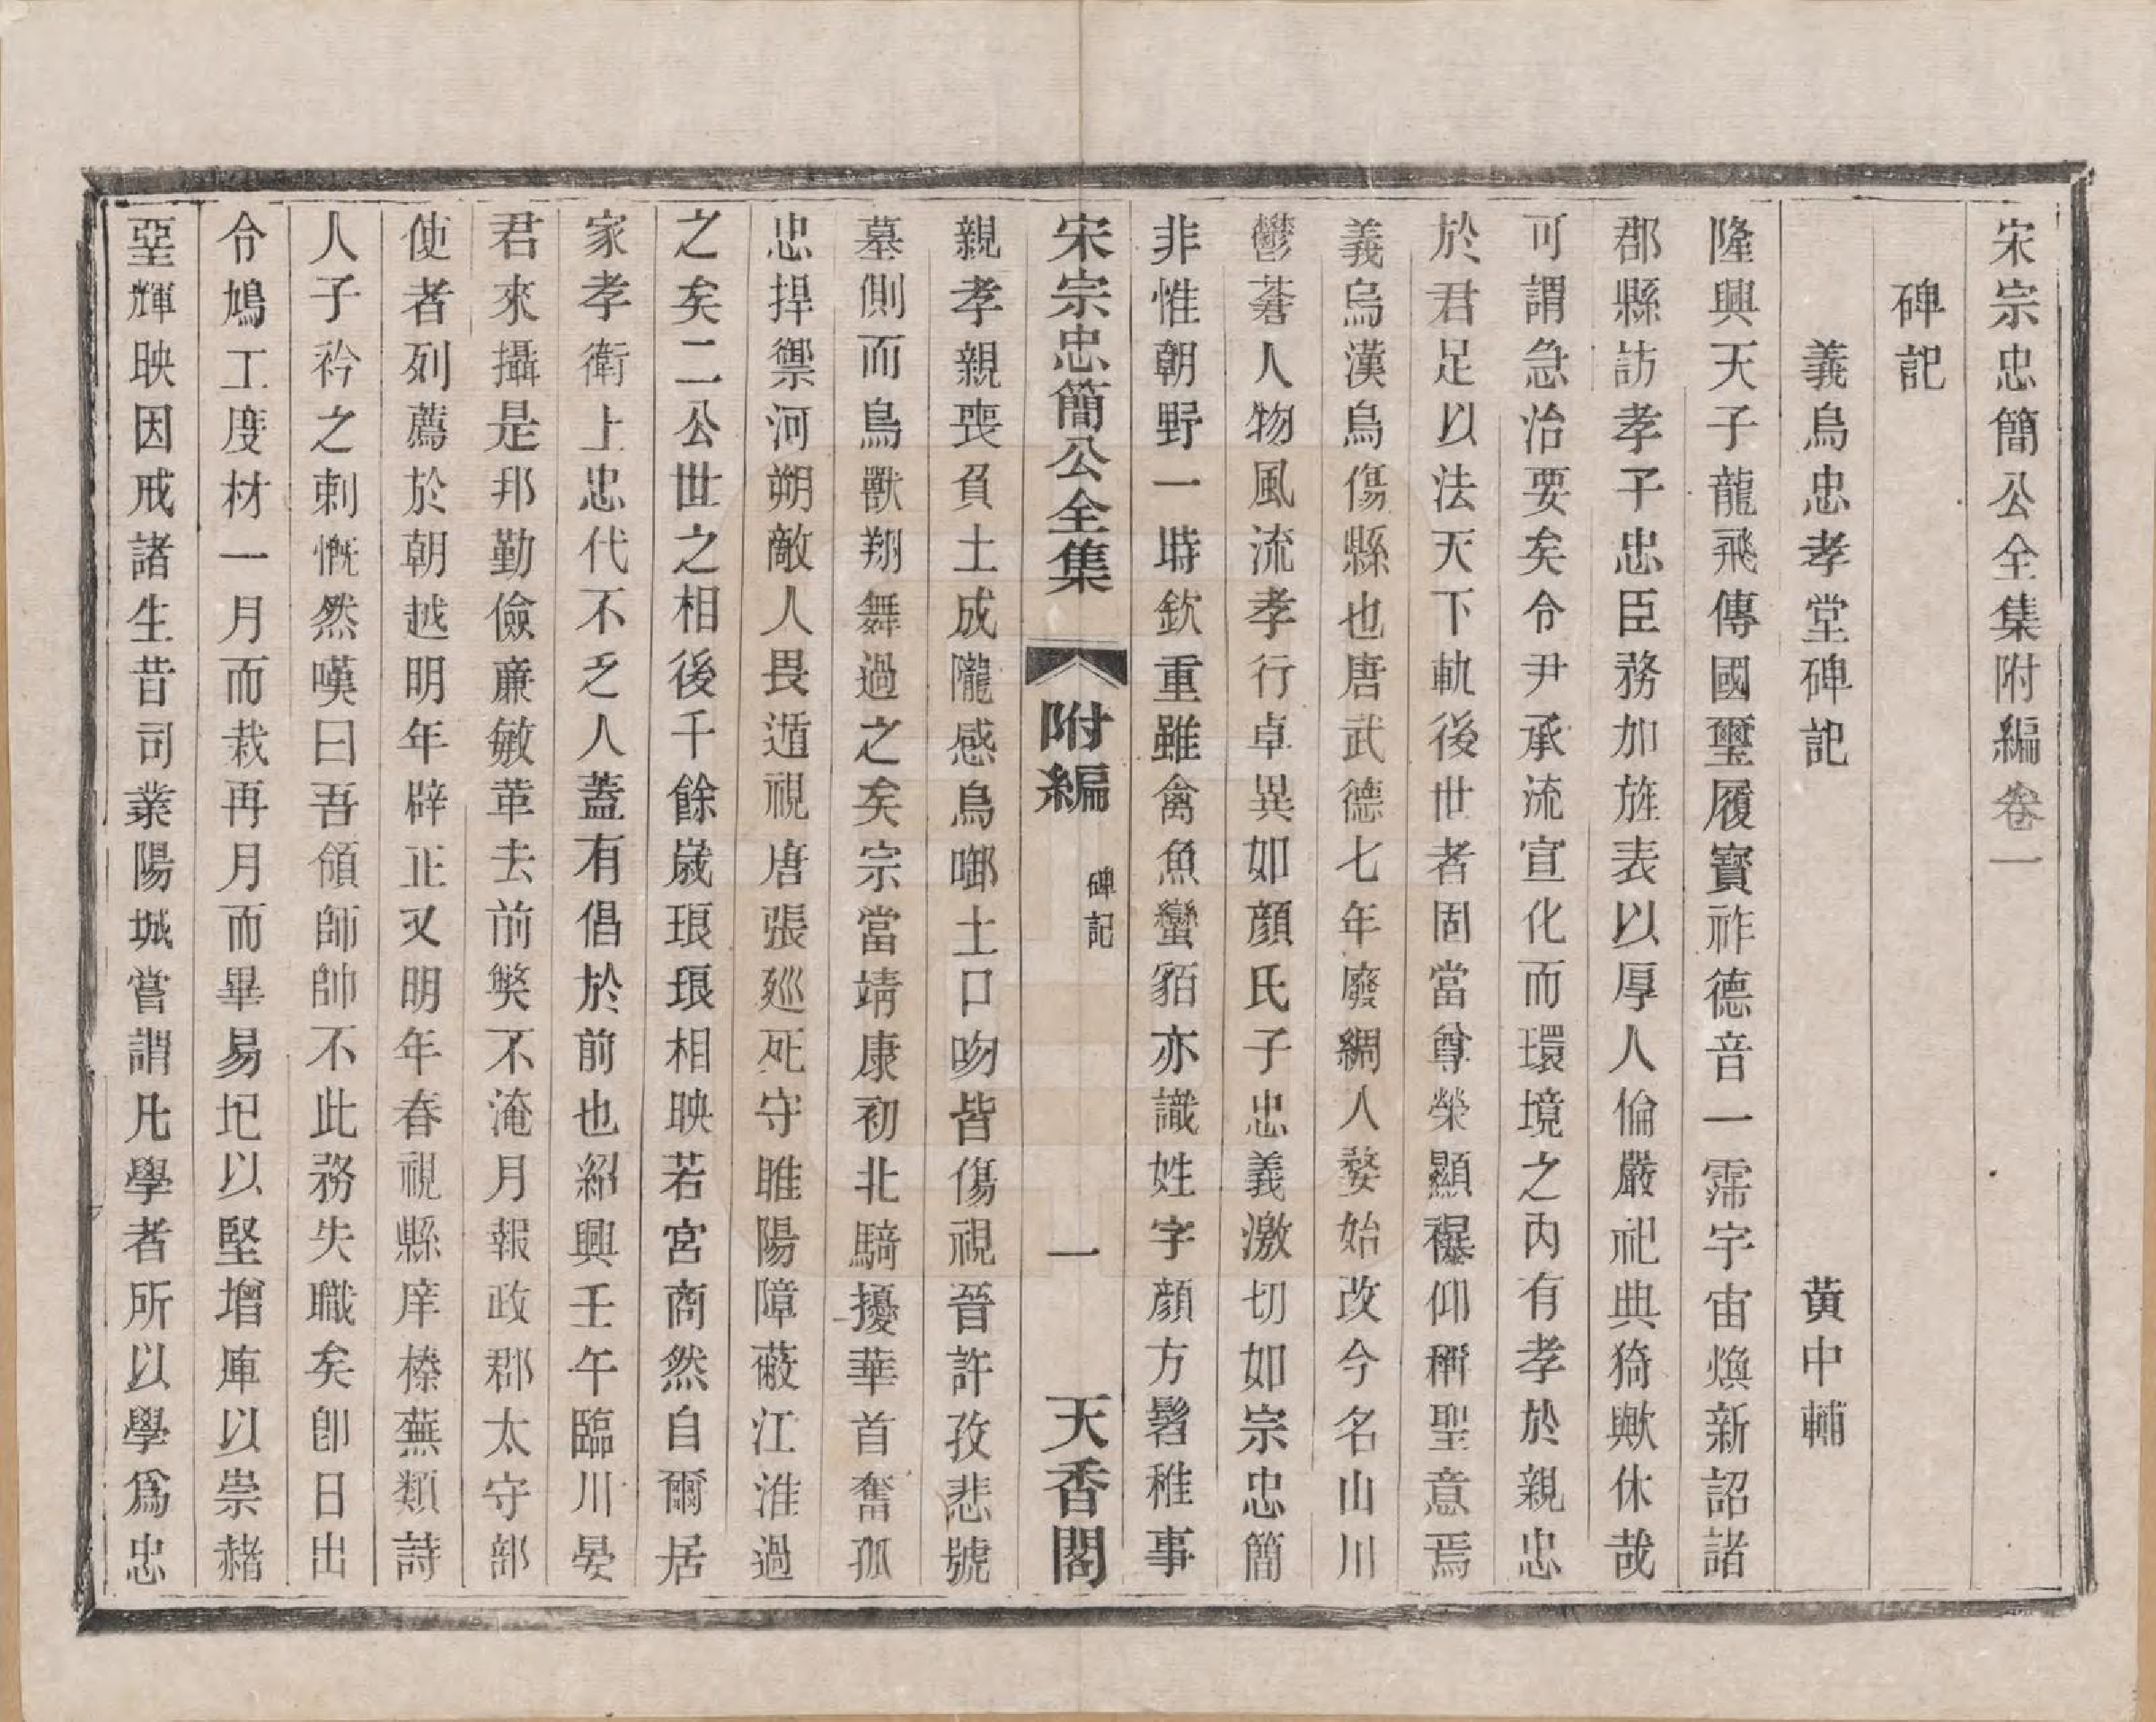 宋宗忠簡公全集附編卷一
碑記
義烏忠孝堂碑記 黃中輔
隆興天子龍飛傳國璽履寶祚德音一霈宇宙煥新詔諸
郡縣訪孝子忠臣務加旌表以厚人倫嚴祀典猗歟休哉
可謂急治要矣令尹承流宣化而環境之內有孝於親忠
於君足以法天下軌後世者固當尊榮顯襮仰稱聖意焉
義烏漢烏傷縣也唐武德七年廢綢入婺始改今名山川
鬱蒼人物風流孝行卓異如顏氏子忠義激切如宗忠簡
非惟朝野一時欽重雖禽魚蠻貊亦識姓字顏方髫稚事
宋宗忠簡公全集 附編 碑記 一 天香閣
親孝親喪負土成隴感烏啣土口吻皆傷視晉許孜悲號
墓側而鳥獸翔舞過之矣宗當靖康初北騎擾華首奮孤
忠捍禦河朔敵人畏遁視唐張巡死守睢陽障蔽江淮過
之矣二公世之相後千餘歲琅琅相映若宮商然自爾居
家孝衛上忠代不乏人蓋有倡於前也紹興壬午臨川晏
君來攝是邦勤儉廉敏革去前獘不淹月報政郡太守部
使者列薦於朝越明年辟正又明年春視縣庠榛蕪類詩
人子衿之刺慨然嘆曰吾領師帥不此務失職矣卽日出
令鳩工度材一月而栽再月而畢易圮以堅增庳以崇赭
堊輝映因戒諸生昔司業陽城嘗謂凡學者所以學爲忠